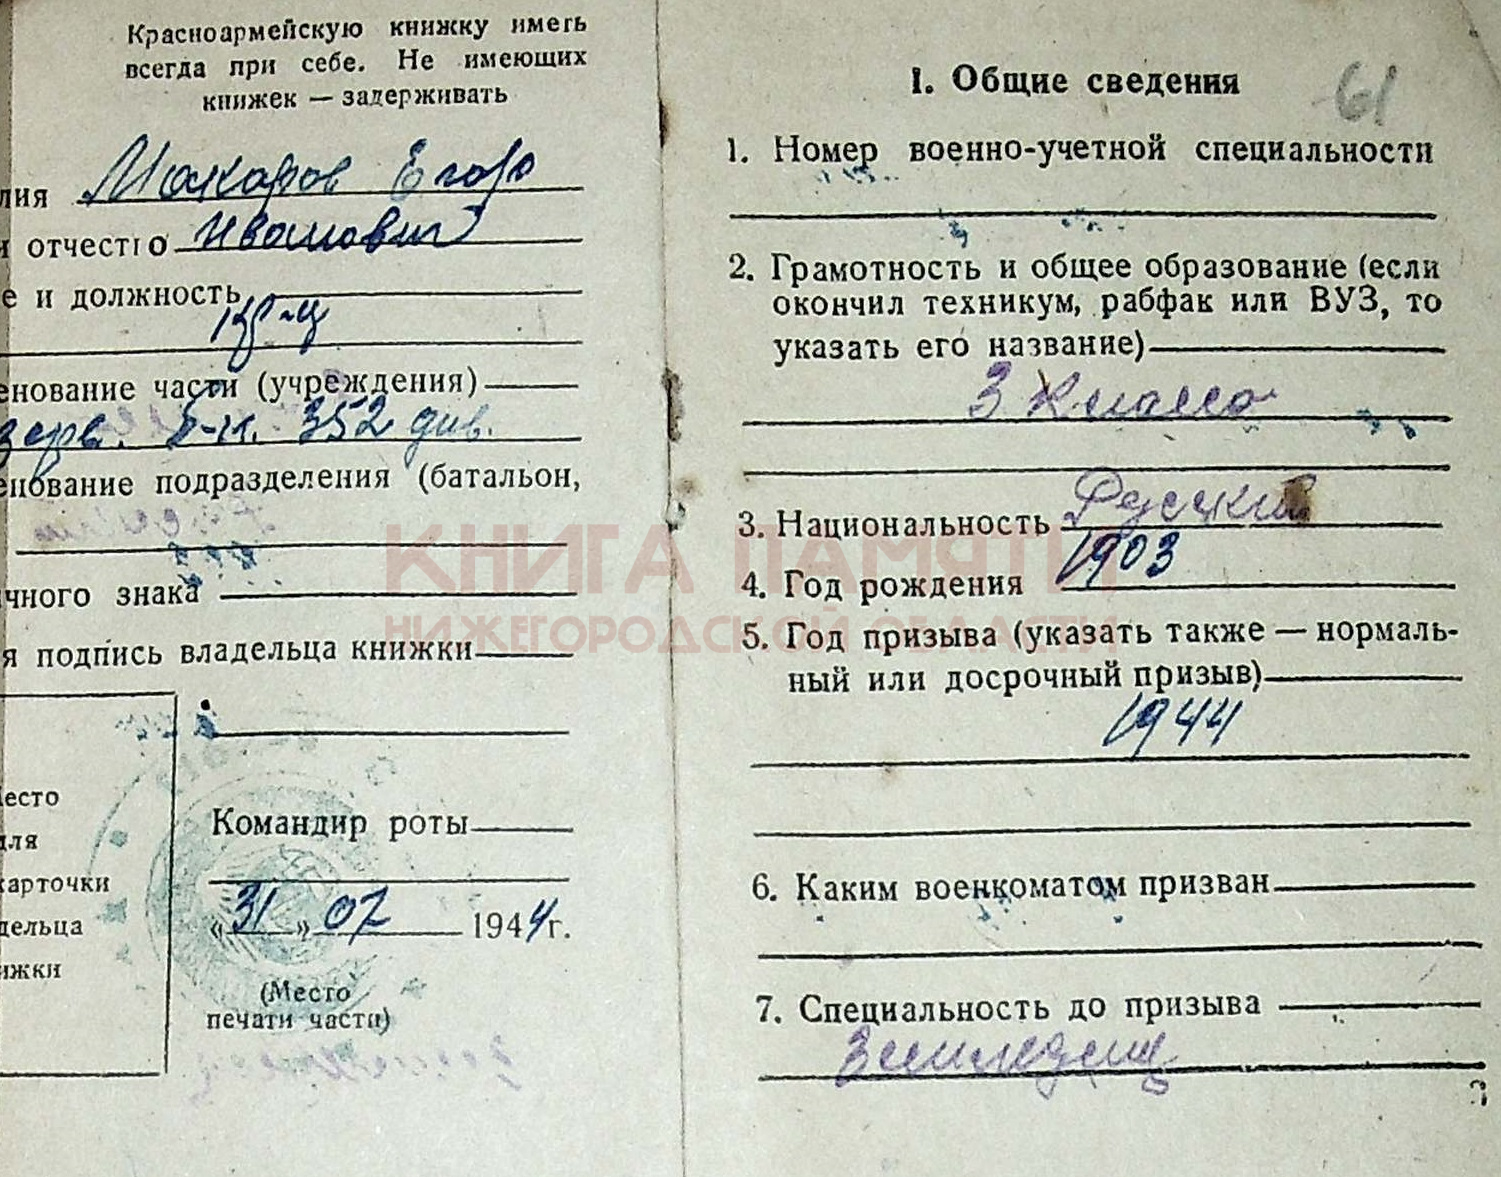 Красноармейскую книжку иметь
всегда при себе. Не имеющих
книжек — задерживать
лия Макаров Егор
и отчество Иванович
е и должность
кр-ц
енование части (учреждения)
зерв. 352 див.
енование подразделения (батальон,
чного знака
я подпись владельца книжки
Место
для
карточки
дельца
ижки
Командир роты
«31» 07 1944г.
(Место
печати части)
61
I. Общие сведения
1. Номер военно-учетной специальности
2. Грамотность и общее образование (если
окончил техникум, рабфак или ВУЗ, то
указать его название)
3 класса
3. Национальность Русский
4. Год рождения 1903
5. Год призыва (указать также — нормаль-
ный или досрочный призыв)
1944
6. Каким военкоматом призван
7. Специальность до призыва
КНИГА ПАМЯТИ
НИЖЕГОРОДСКОЙ ОБЛАСТИ